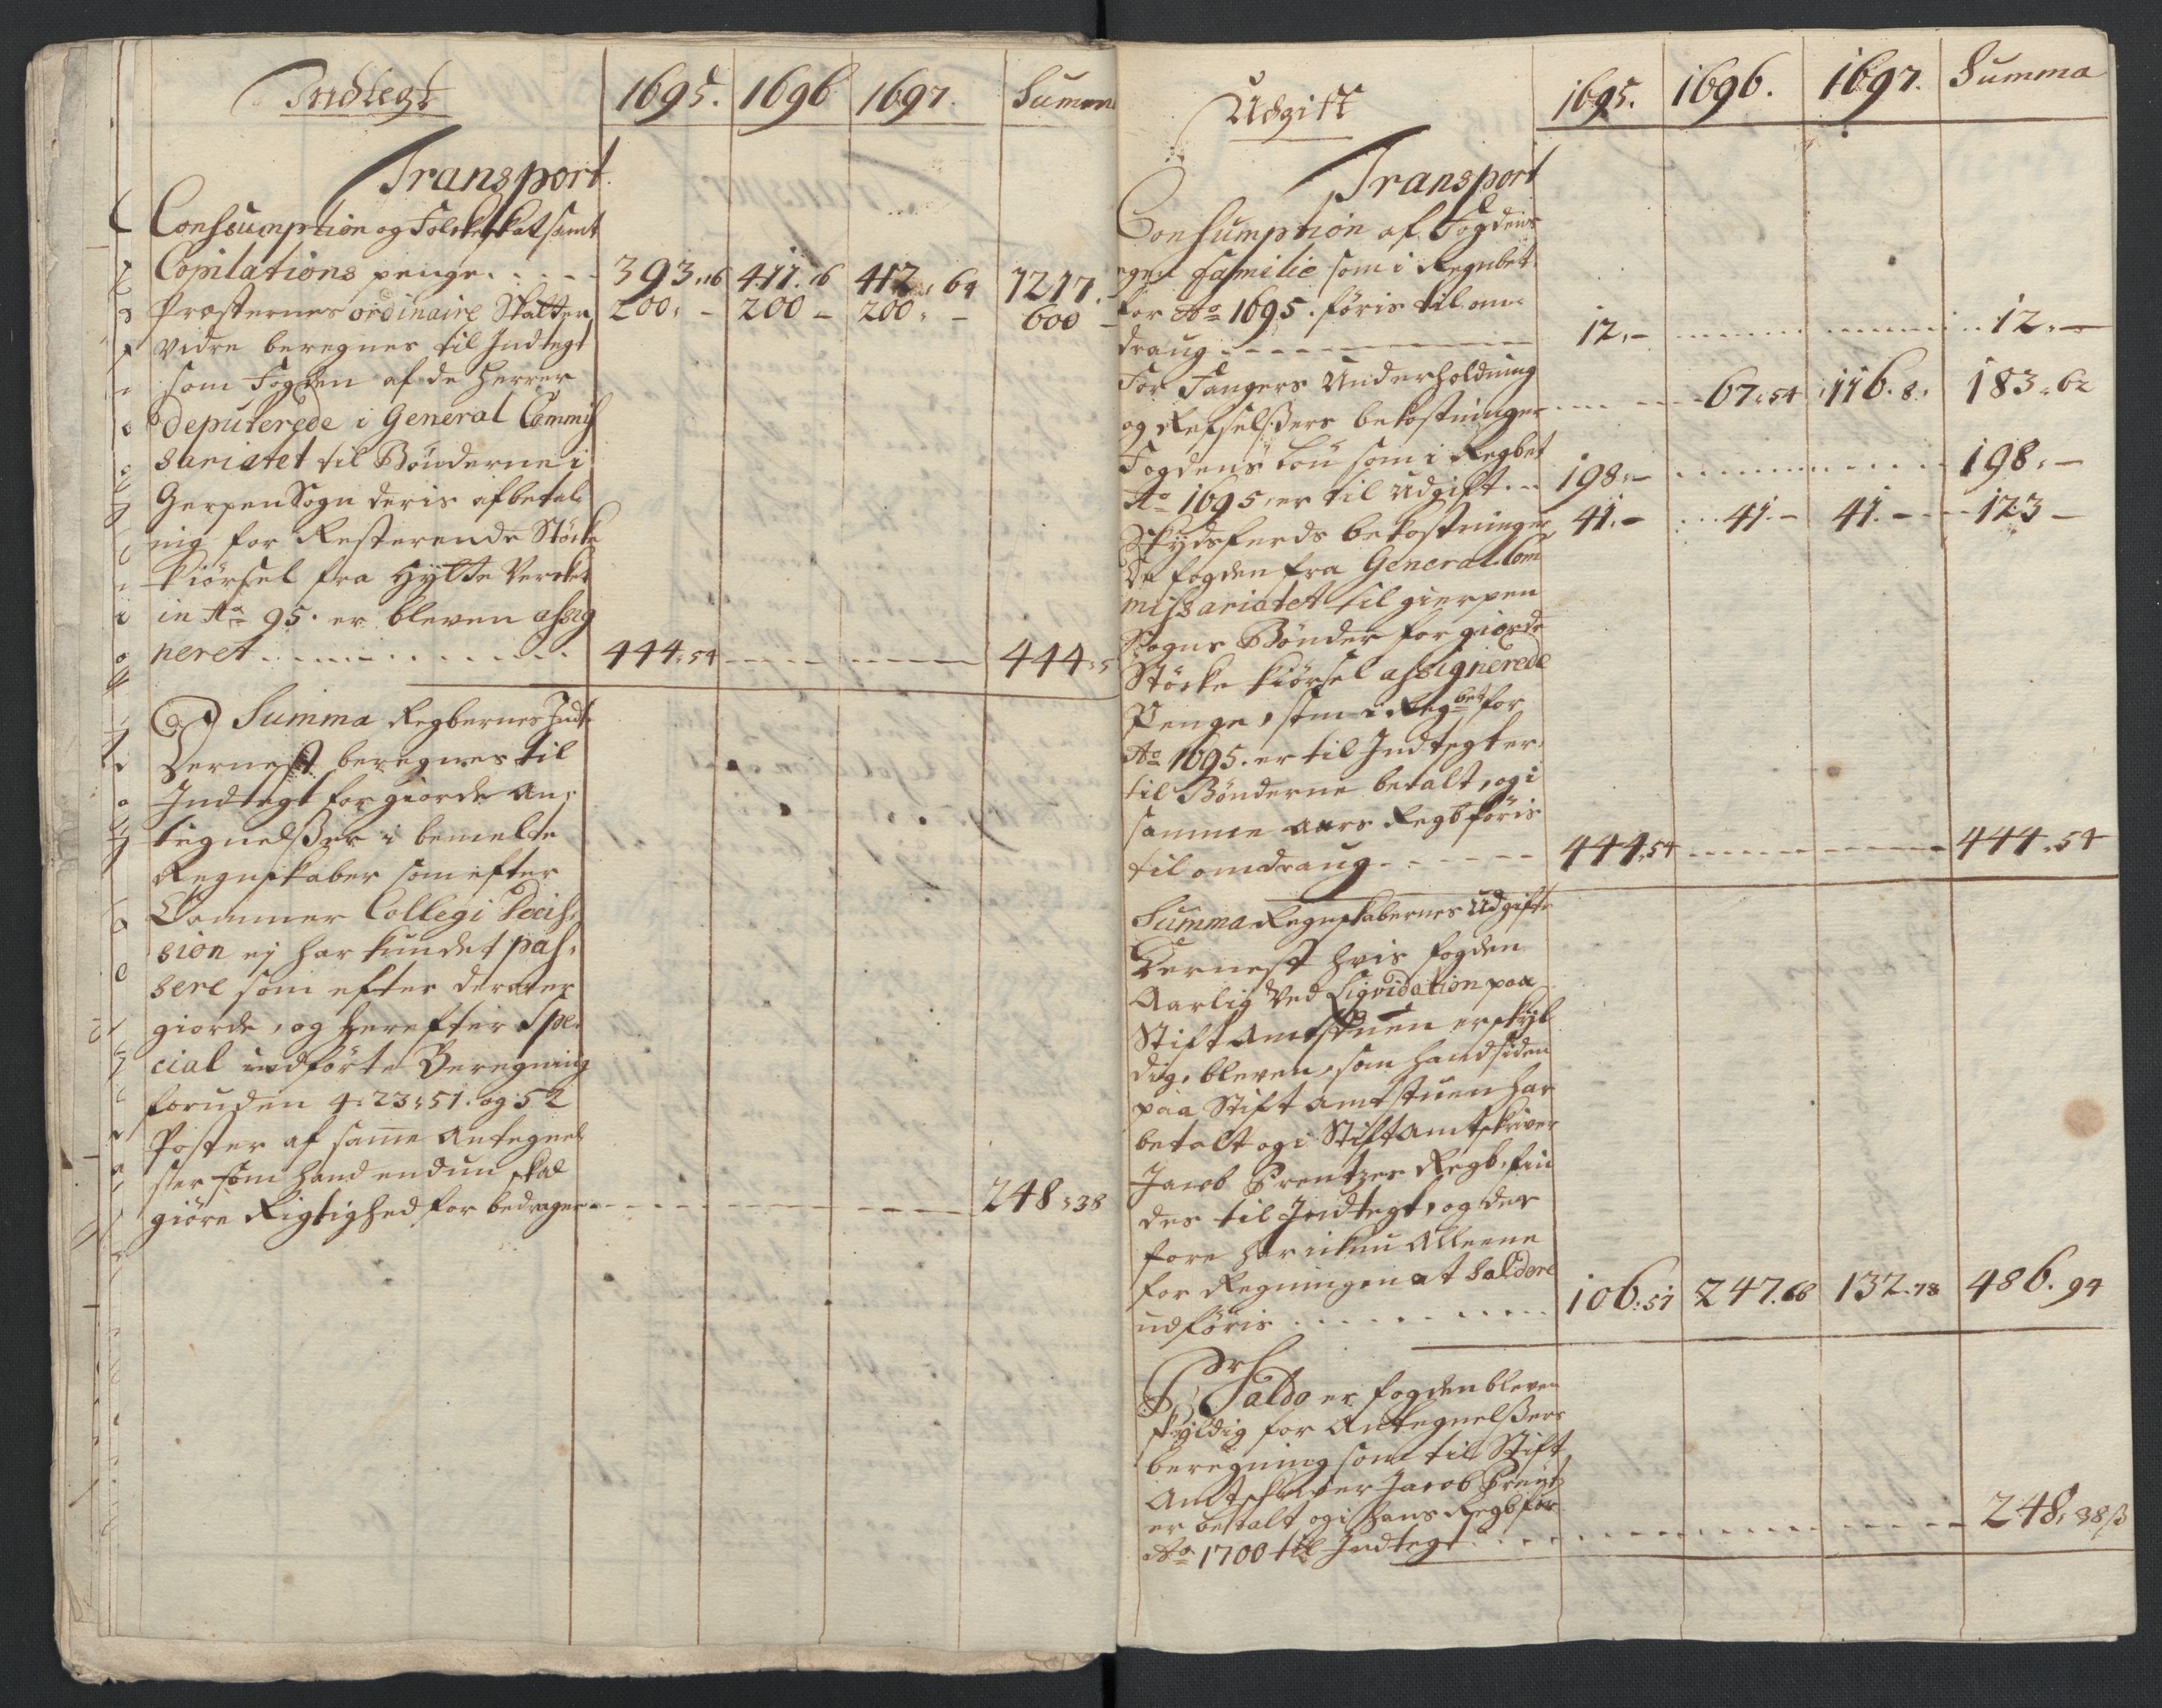 Indtegt 1695. 1696 1697. Summa
Transport.
Consumption og Folckeskat samt
Copulations penge. . . . . 393.16 411.16 412.64 1217.
Præsternes ordinaire Skatter 200. – 200 – 200. – 600 –
Vidre beregnes til Indtegt
som Fogden af de Herrer
deputerede i General Commis
sariatet til Bønderne i
Gerpen Sogn deris afbetal
nig for Resterende Støcke
kiørsel fra Hytte Vercket
in Ao 95. er bleven assig
neret . . . . . . . . . 444.54 – – – 444.5
Summa Regbernes Indt.
Dernest beregnes til
Indtegt for giorde An,
tegnelsser i bemelte
Regnskaber som efter
Cammer Collegi Decis,
sion ej har kundet pas,
sere som efter derover
giorde, og herefter Spe,
cial indførte Beregning
foruden 4: 23: 51. og 52
Poster af samme Antegnel
ser som hand endnu skal
giøre Rigtighed for bedrager – – – 248.38
Udgift 1695. 1696. 1697. Summa
Transport
Consumption af Fogdens
egen familie som i Regnbet.
for Ao 1695. føris til om,
draug . – – – – 12. – . . . . . . 12. –
For Fangers Underholdning
og Refselssers bekostninger . . . . 67.54 116.8. 183.62
Fogdens Løn som i Regbet
Ao 1695, er til Udgift . – 198. – . . . . . . 198. –
Skydsferds bekostninger 41. – . . 41. – 41. – – 123 –
De fogden fra General Com
missariatet til gierpen
Sogns Bønder for giorde
Støcke kiørsel assignerede
Penge, som i Regbet for
Ao 1695. er til Indtegt er,
til Bønderne betalt, og i
samme aars Regb føris
til omdraug . – – – – 444.54 – – – 444.54
Summa Regnskabernes Udgift
Dernest hvis fogden
Aarlig ved Liqvidation paa
Stift Amtstuen er skyl
dig, bleven, som hand siden
paa Stift amtstuen har
betalt og i Stiftamtskriver
Jacob Prentzes Regb. fin
des til Indtegt, og der
fore her ickun Alleene
for Regningen at saldere
udføris . . . . . . . . 106.51 247.68 132.78 486.94
Pr Saldo er fogden bleven
skyldig for Antegnelssers
beregning som til Stift
Amtskriver Jacob Prentz
er betalt og i hans Regb for
Ao 1700 til Indtegt . . . . – – – 248.38 ß